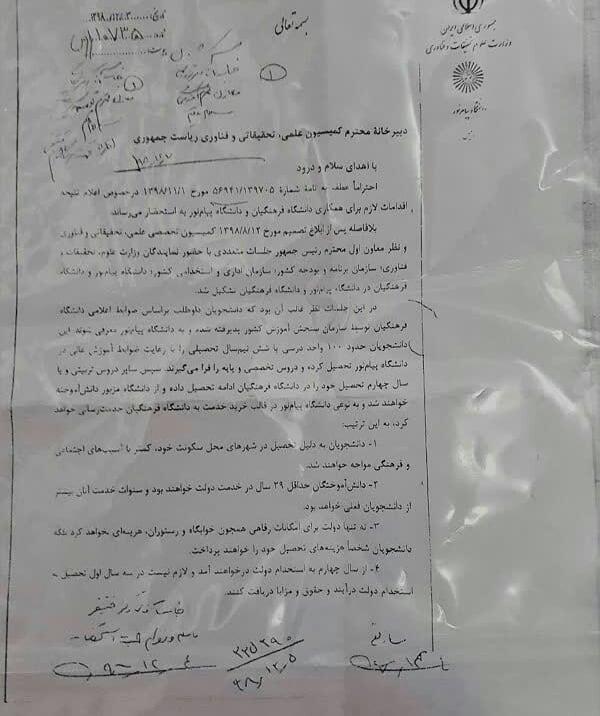 بسمه تعالی
جمهوری اسلامی ایران
وزارت علوم تحقیقات و فناوری
دانشگاه پیام نور
تاریخ: ۱۳۹۸/۱۲/۰۳
دبیرخانهٔ محترم کمیسیون علمی، تحقیقاتی و فناوری ریاست جمهوری
با اهدای سلام و درود
احتراماً عطف به نامهٔ شمارهٔ ۵۶۹۴۱/۱۳۹۷۰۵ مورخ ۱۳۹۸/۱۱/۱ درخصوص اعلام نتیجه
اقدامات لازم برای همکاری دانشگاه فرهنگیان و دانشگاه پیام‌نور به استحضار می‌رساند.
بلافاصله پس از ابلاغ تصمیم مورخ ۱۳۹۸/۸/۱۲ کمیسیون تخصصی علمی، تحقیقاتی و فناوری
و نظر معاون اول محترم رئیس جمهور جلسات متعددی با حضور نمایندگان وزارت علوم، تحقیقات و
فناوری؛ سازمان برنامه و بودجه کشور؛ سازمان اداری و استخدامی کشور؛ دانشگاه پیام‌نور و دانشگاه
فرهنگیان در دانشگاه پیام‌نور و دانشگاه فرهنگیان تشکیل شد.
در این جلسات نظر غالب آن بود که دانشجویان داوطلب براساس ضوابط اعلامی دانشگاه
فرهنگیان توسط سازمان سنجش آموزش کشور پذیرفته شده و به دانشگاه پیام‌نور معرفی شوند. این
دانشجویان حدود ۱۰۰ واحد درسی یا شش نیم‌سال تحصیلی را با رعایت ضوابط آموزش عالی در
دانشگاه پیام‌نور تحصیل کرده و دروس تخصصی و پایه را فرا می‌گیرند. سپس سایر دروس تربیتی و یا
سال چهارم تحصیل خود را در دانشگاه فرهنگیان ادامه تحصیل داده و از دانشگاه مزبور دانش‌آموخته
خواهند شد و به نوعی دانشگاه پیام‌نور در قالب خرید خدمت به دانشگاه فرهنگیان خدمت‌رسانی خواهد
کرد، به این ترتیب:
۱- دانشجویان به دلیل تحصیل در شهرهای محل سکونت خود، کمتر با آسیب‌های اجتماعی
و فرهنگی مواجه خواهند شد.
۲- دانش‌آموختگان حداقل ۲۹ سال در خدمت دولت خواهند بود و سنوات خدمت آنان بیشتر
از دانشجویان فعلی خواهد بود.
۳- نه تنها دولت برای امکانات رفاهی همچون خوابگاه و رستوران، هزینه‌ای نخواهد کرد بلکه
دانشجویان شخصاً هزینه‌های تحصیل خود را خواهند پرداخت.
۴- از سال چهارم به استخدام دولت درخواهند آمد و لازم نیست در سه سال اول تحصیل به
استخدام دولت درآیند و حقوق و مزایا دریافت کنند.
۲۳۵۲۹۰
۹۸/۱۲/۰۵